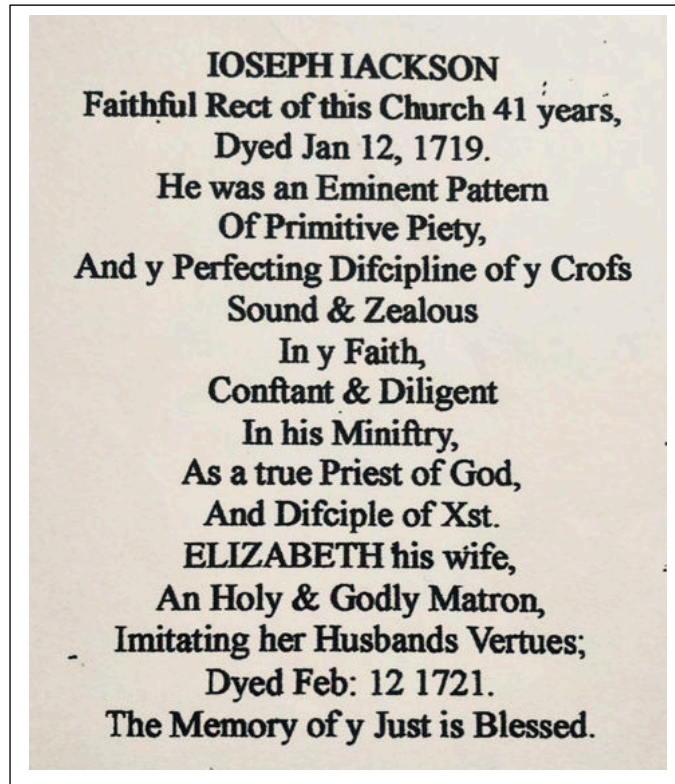 IOSEPH IACKSON
Faithful Rect of this Church 41 years,
Dyed Jan 12, 1719.
He was an Eminent Pattern
Of Primitive Piety,
And y Perfecting Difcipline of y Crofs
Sound & Zealous
In y Faith,
Conftant & Diligent
In his Miniftry,
As a true Priest of God,
And Difciple of Xst.
ELIZABETH his wife,
An Holy & Godly Matron,
Imitating her Husbands Vertues;
Dyed Feb: 12 1721.
The Memory of y Just is Blessed.